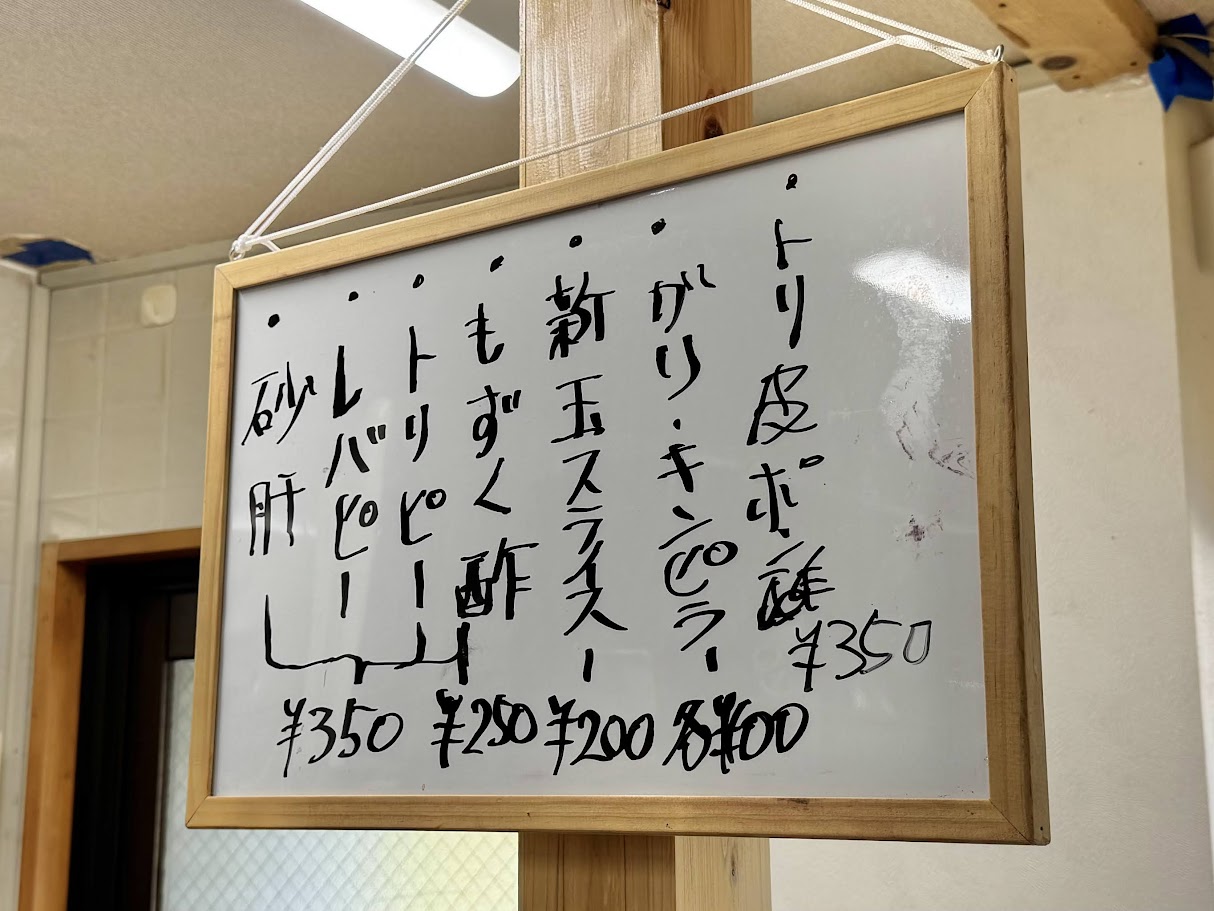 ・トリ皮ポン酢
¥350
・がり・キンピラ
各¥100
・新玉スライス
¥200
・もずく酢
¥250
・トリピー
・レバピー
・砂肝
¥350